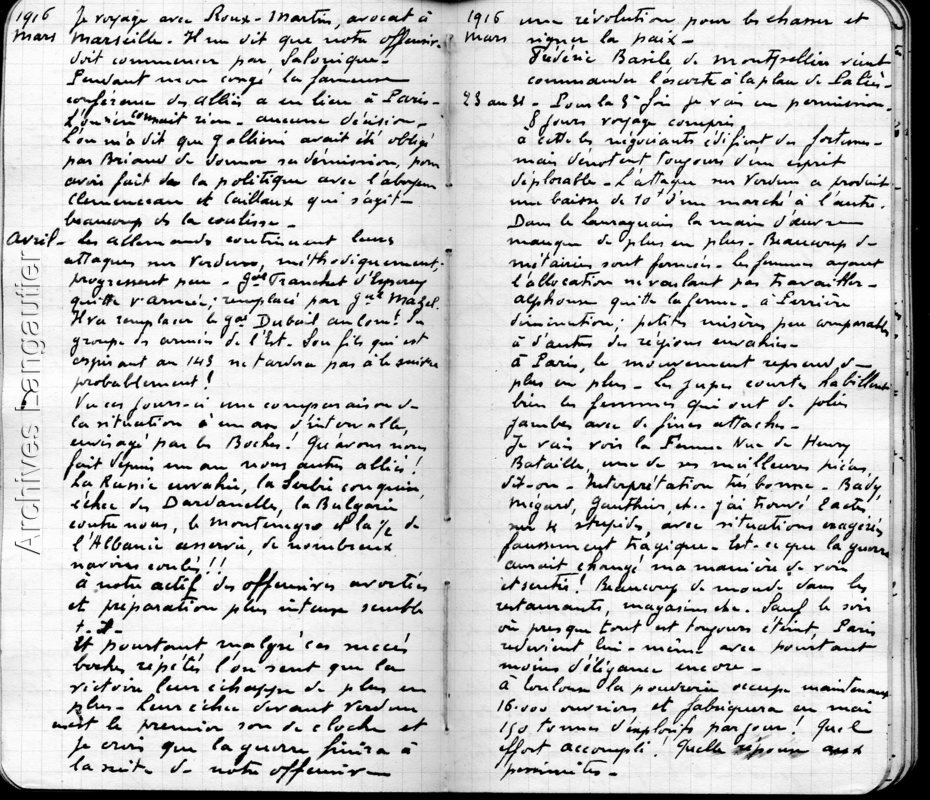 1916
Mars
Je voyage avec Roux-Martin, avocat à
Marseille. Il me dit que notre offensive
doit commencer par Salonique.
Pendant mon congé la fameuse
conférence des alliés a eu lieu à Paris.
L'on n'en connait rien. aucune décision.
L'on m'a dit que Gallieni avait été obligé
par Briand de donner sa démission, pour
avoir fait de la politique avec l'aboyeur
Clemenceau et Caillaux qui s'agit
beaucoup ds la coulisse.
Avril. Les allemands continuent leurs
attaques sur Verdun, méthodiquement;
progressent peu. Gal Franchet d'Esperey
quitte l'armée; remplacé par Gal Mazel.
Il va remplacer le Gal Dubail au comt du
groupe des armées de l'Est. Son fils qui est
aspirant au 149 ne tardera pas à le suivre
probablement!
Vu ces jours-ci une comparaison de
la situation à un an d'intervalle,
envisagé par les Boches! Qu'avons nous
fait depuis un an nous autres alliés!
La Russie envahie, la Serbie conquise,
échec des Dardanelles, la Bulgarie
contre nous, le Montenegro et la 1/2 de
l'Albanie asservie, de nombreux
navires coulés!!
à notre actif des offensives avortées
et préparation plus intense semble
t-il-
Et pourtant malgré ces succès
boches répétés l'on sent que la
victoire leur échappe de plus en
plus. Leur échec devant Verdun
est le premier son de cloche et
je crois que la guerre finira à
la suite de notre offensive
1916
Mars
une révolution pour les chasser et
signer la paix.
Frédéric Bazile de Montpellier vient
commander l'escorte à la place de
23 au 31. Pour la 5e fois je vais en permission.
8 jours voyage compris
à Cette les négociants édifient des fortunes.
mais dénotent toujours d'un esprit
déplorable. L'attaque sur Verdun a produit
une baisse de 10f d'un marché à l'autre.
Dans le Lauraguais la main d'œuvre
manque de plus en plus. Beaucoup de
métairies sont fermées. Les femmes ayant
l'allocation ne voulant pas travailler.
Alphonse quitte la ferme. à Perrière
diminution; petites misères peu comparables
à d'autres des régions envahies.
à Paris, le mouvement reprend de
plus en plus. Les jupes courtes habillent
bien les femmes qui ont de jolies
jambes avec de fines attaches.
Je vais voir la Femme Nue de Henry
Bataille, une de ses meilleures pièces,
dit-on. Interprétation très bonne. Bady,
Mégard, Gauthier, etc. j'ai trouvé 2 actes
sur 4 stupides avec situations exagérées
faussement tragique. Est-ce que la guerre
aurait changé ma manière de voir
et sentir! Beaucoup de monde dans les
restaurants, magasins etc. Sauf le soir
où presque tout est toujours éteint, Paris
redevient lui-même avec pourtant
moins d'élégance encore.
à Toulouse la poudrerie occupe maintenant
16.000 ouvriers et fabriquera en mai
150 tonnes d'explosifs par jour! Quel
effort accompli! Quelle réponse aux
pessimistes.
Archives Langautier